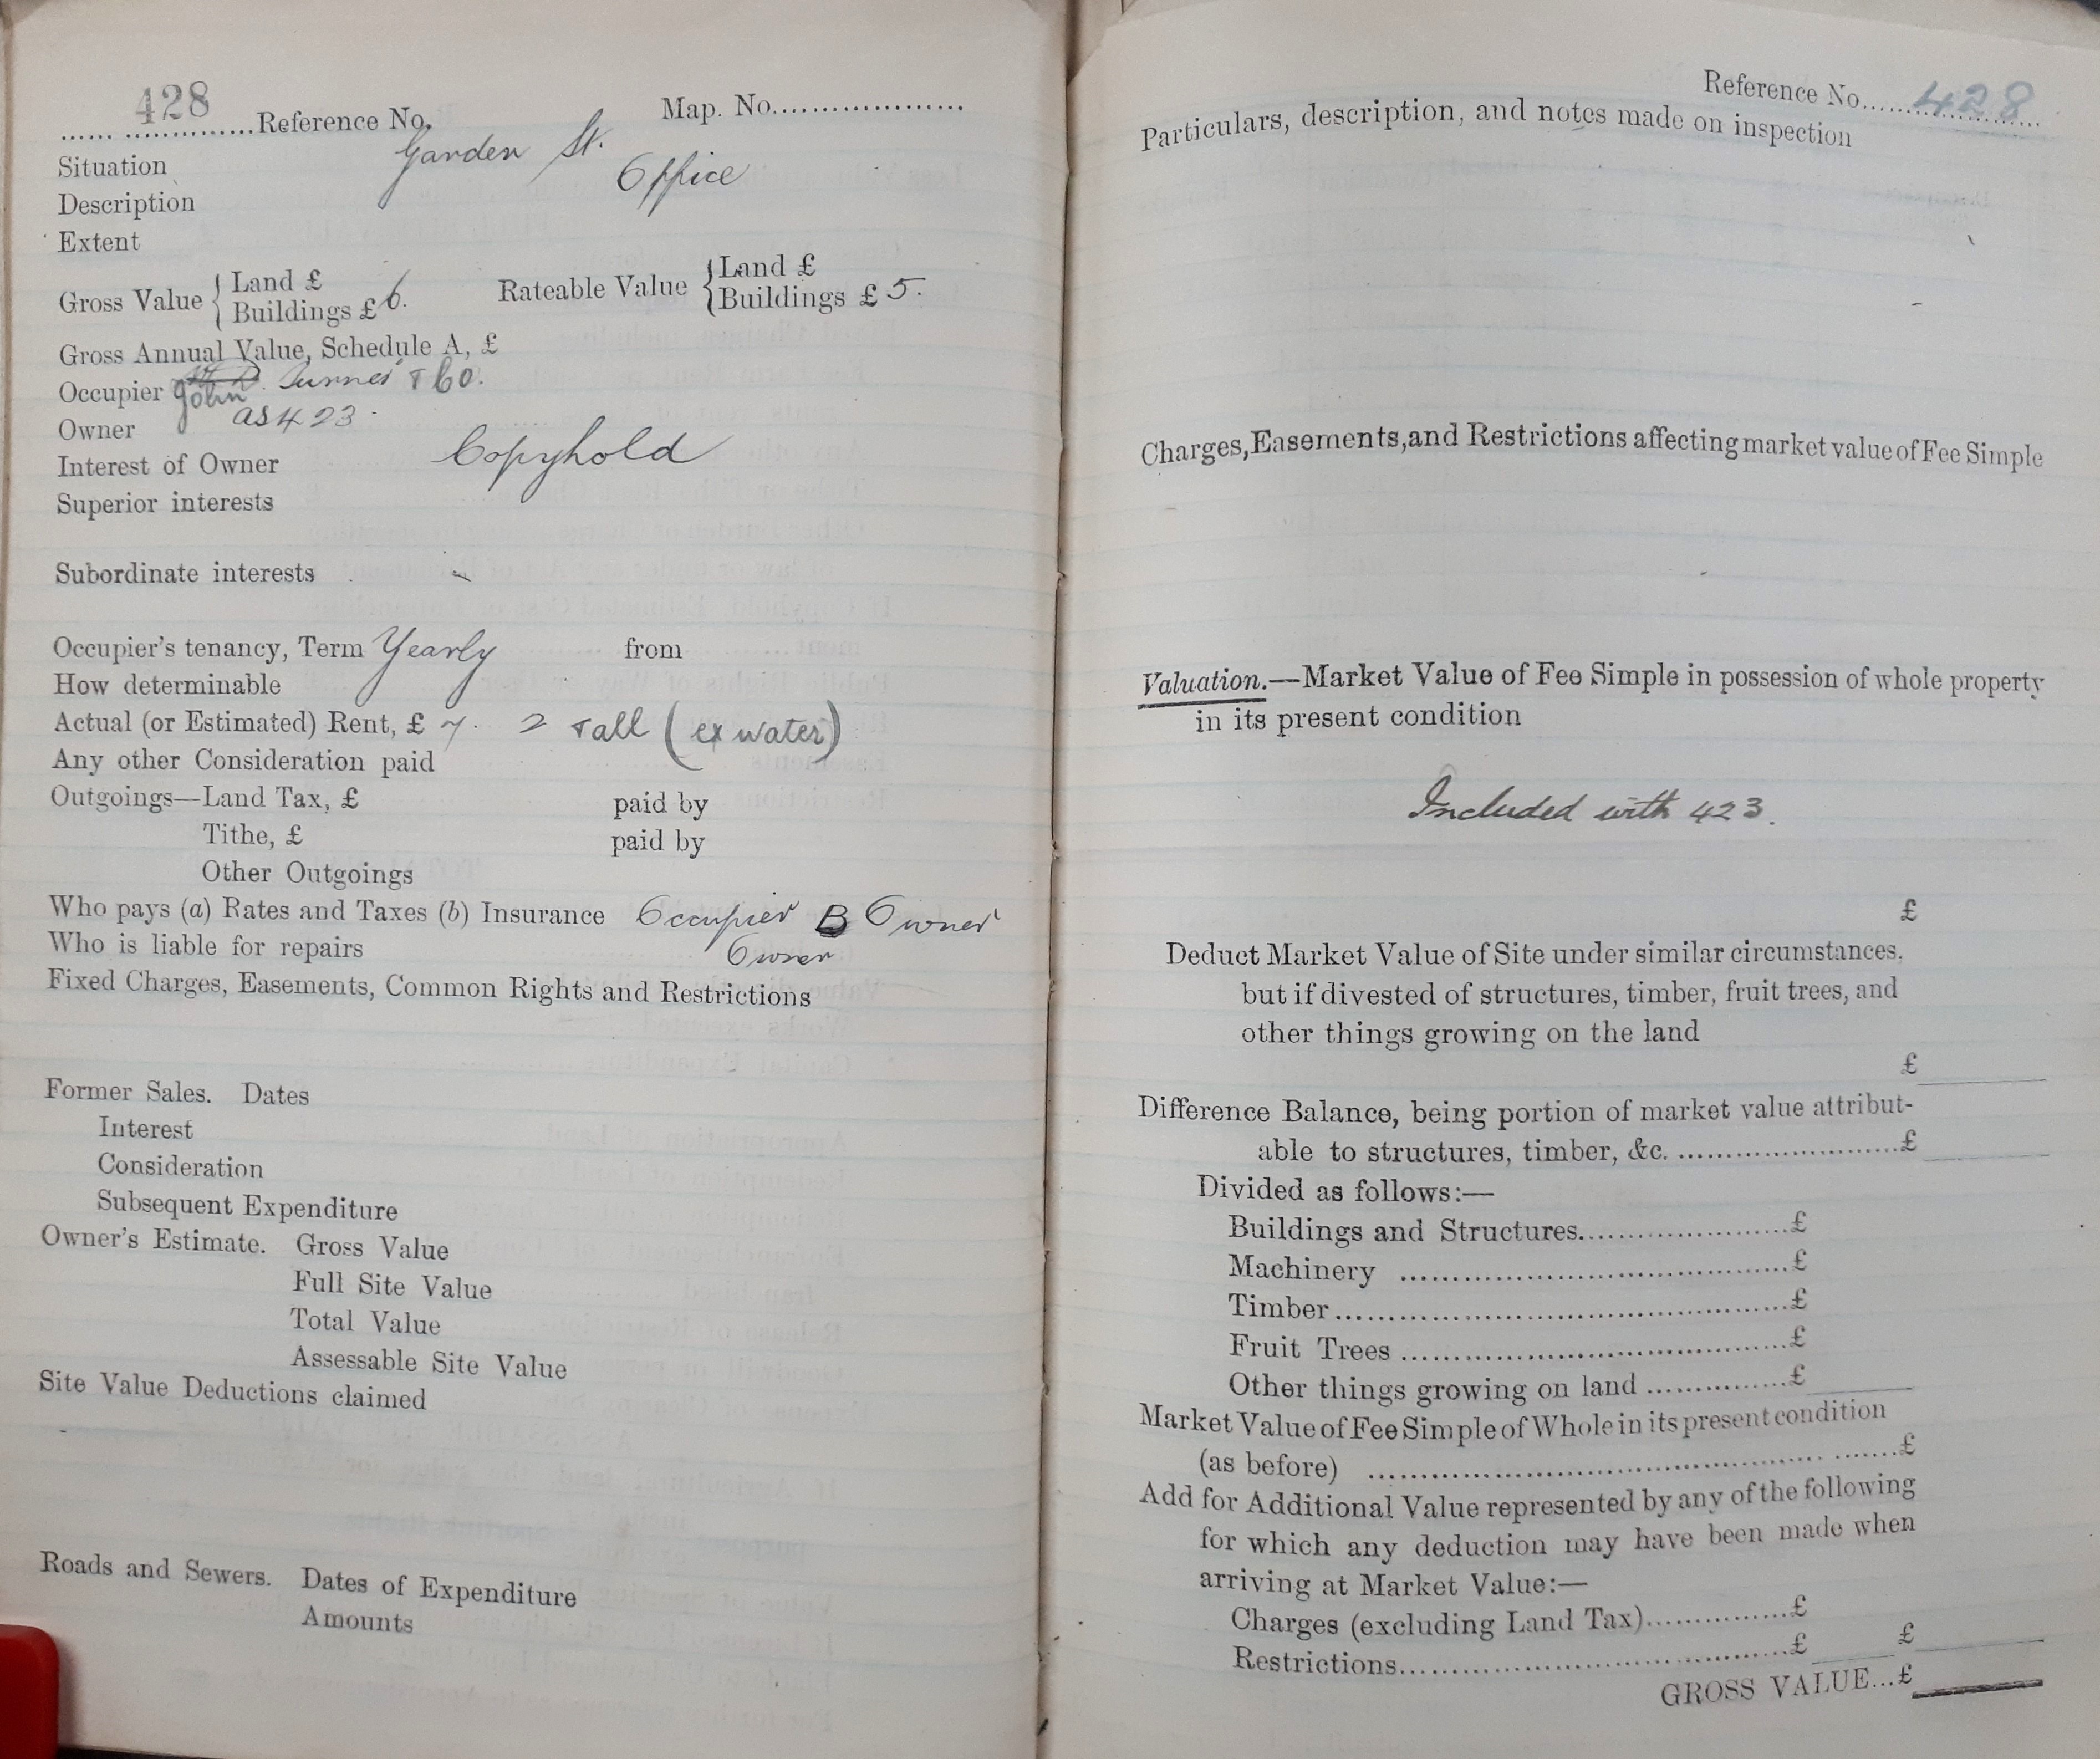 428
Reference No. Map. No.
Situation Garden St.
Description Office
Extent
Gross Value { Land £
Buildings £ 6.
Rateable Value { Land £
Buildings £ 5.
Gross Annual Value, Schedule A, £
Occupier John Turner & Co.
Owner as 423.
Interest of Owner Copyhold
Superior interests
Subordinate interests
Occupier's tenancy, Term Yearly from
How determinable
Actual (or Estimated) Rent, £ 7. 2 & all (ex water)
Any other Consideration paid
Outgoings—Land Tax, £ paid by
Tithe, £ paid by
Other Outgoings
Who pays (a) Rates and Taxes (b) Insurance Occupier B Owner
Who is liable for repairs Owner
Fixed Charges, Easements, Common Rights and Restrictions
Former Sales. Dates
Interest
Consideration
Subsequent Expenditure
Owner's Estimate. Gross Value
Full Site Value
Total Value
Assessable Site Value
Site Value Deductions claimed
Roads and Sewers. Dates of Expenditure
Amounts
Reference No. 428
Particulars, description, and notes made on inspection
Charges, Easements, and Restrictions affecting market value of Fee Simple
Valuation.—Market Value of Fee Simple in possession of whole property
in its present condition
Included with 423.
£
Deduct Market Value of Site under similar circumstances,
but if divested of structures, timber, fruit trees, and
other things growing on the land
£
Difference Balance, being portion of market value attribut-
able to structures, timber, &c. £
Divided as follows:—
Buildings and Structures £
Machinery £
Timber £
Fruit Trees £
Other things growing on land £
Market Value of Fee Simple of Whole in its present condition
(as before) £
Add for Additional Value represented by any of the following
for which any deduction may have been made when
arriving at Market Value:—
Charges (excluding Land Tax) £
Restrictions £ £
GROSS VALUE...£